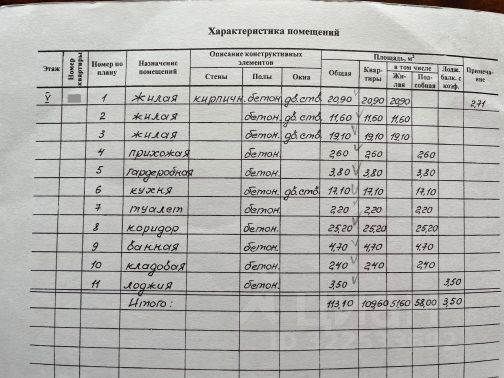 Характеристика помещений
Этаж Номер квартиры Номер по плану Назначение помещений Описание конструктивных элементов Площадь, м² Примечание
Стены Полы Окна Общая Квартиры в том числе Лодж. балк. с коэф.
Жилая Подсобная
V 1 жилая кирпичн. бетон. дв.ств. 20,90 20,90 20,90 2,71
2 жилая бетон. дв.ств. 11,60 11,60 11,60
3 жилая бетон. дв.ств. 19,10 19,10 19,10
4 прихожая бетон. 2,60 2,60 2,60
5 гардеробная бетон. 3,80 3,80 3,80
6 кухня бетон. дв.ств. 17,10 17,10 17,10
7 туалет бетон. 2,20 2,20 2,20
8 коридор бетон. 25,20 25,20 25,20
9 ванная бетон. 4,70 4,70 4,70
10 кладовая бетон. 2,40 2,40 2,40
11 лоджия бетон. 3,50 3,50
Итого: 113,10 109,60 51,60 58,00 3,50